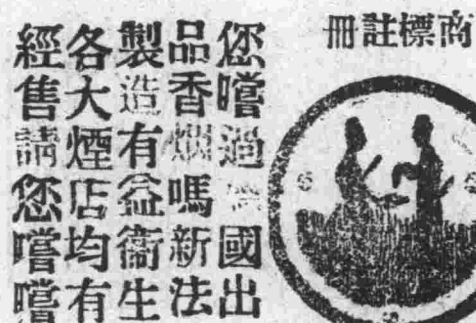 商標註冊
您嚐過國出
品香烟嗎新法
製造有益衛生
各大煙店均有
經售請您嚐嚐